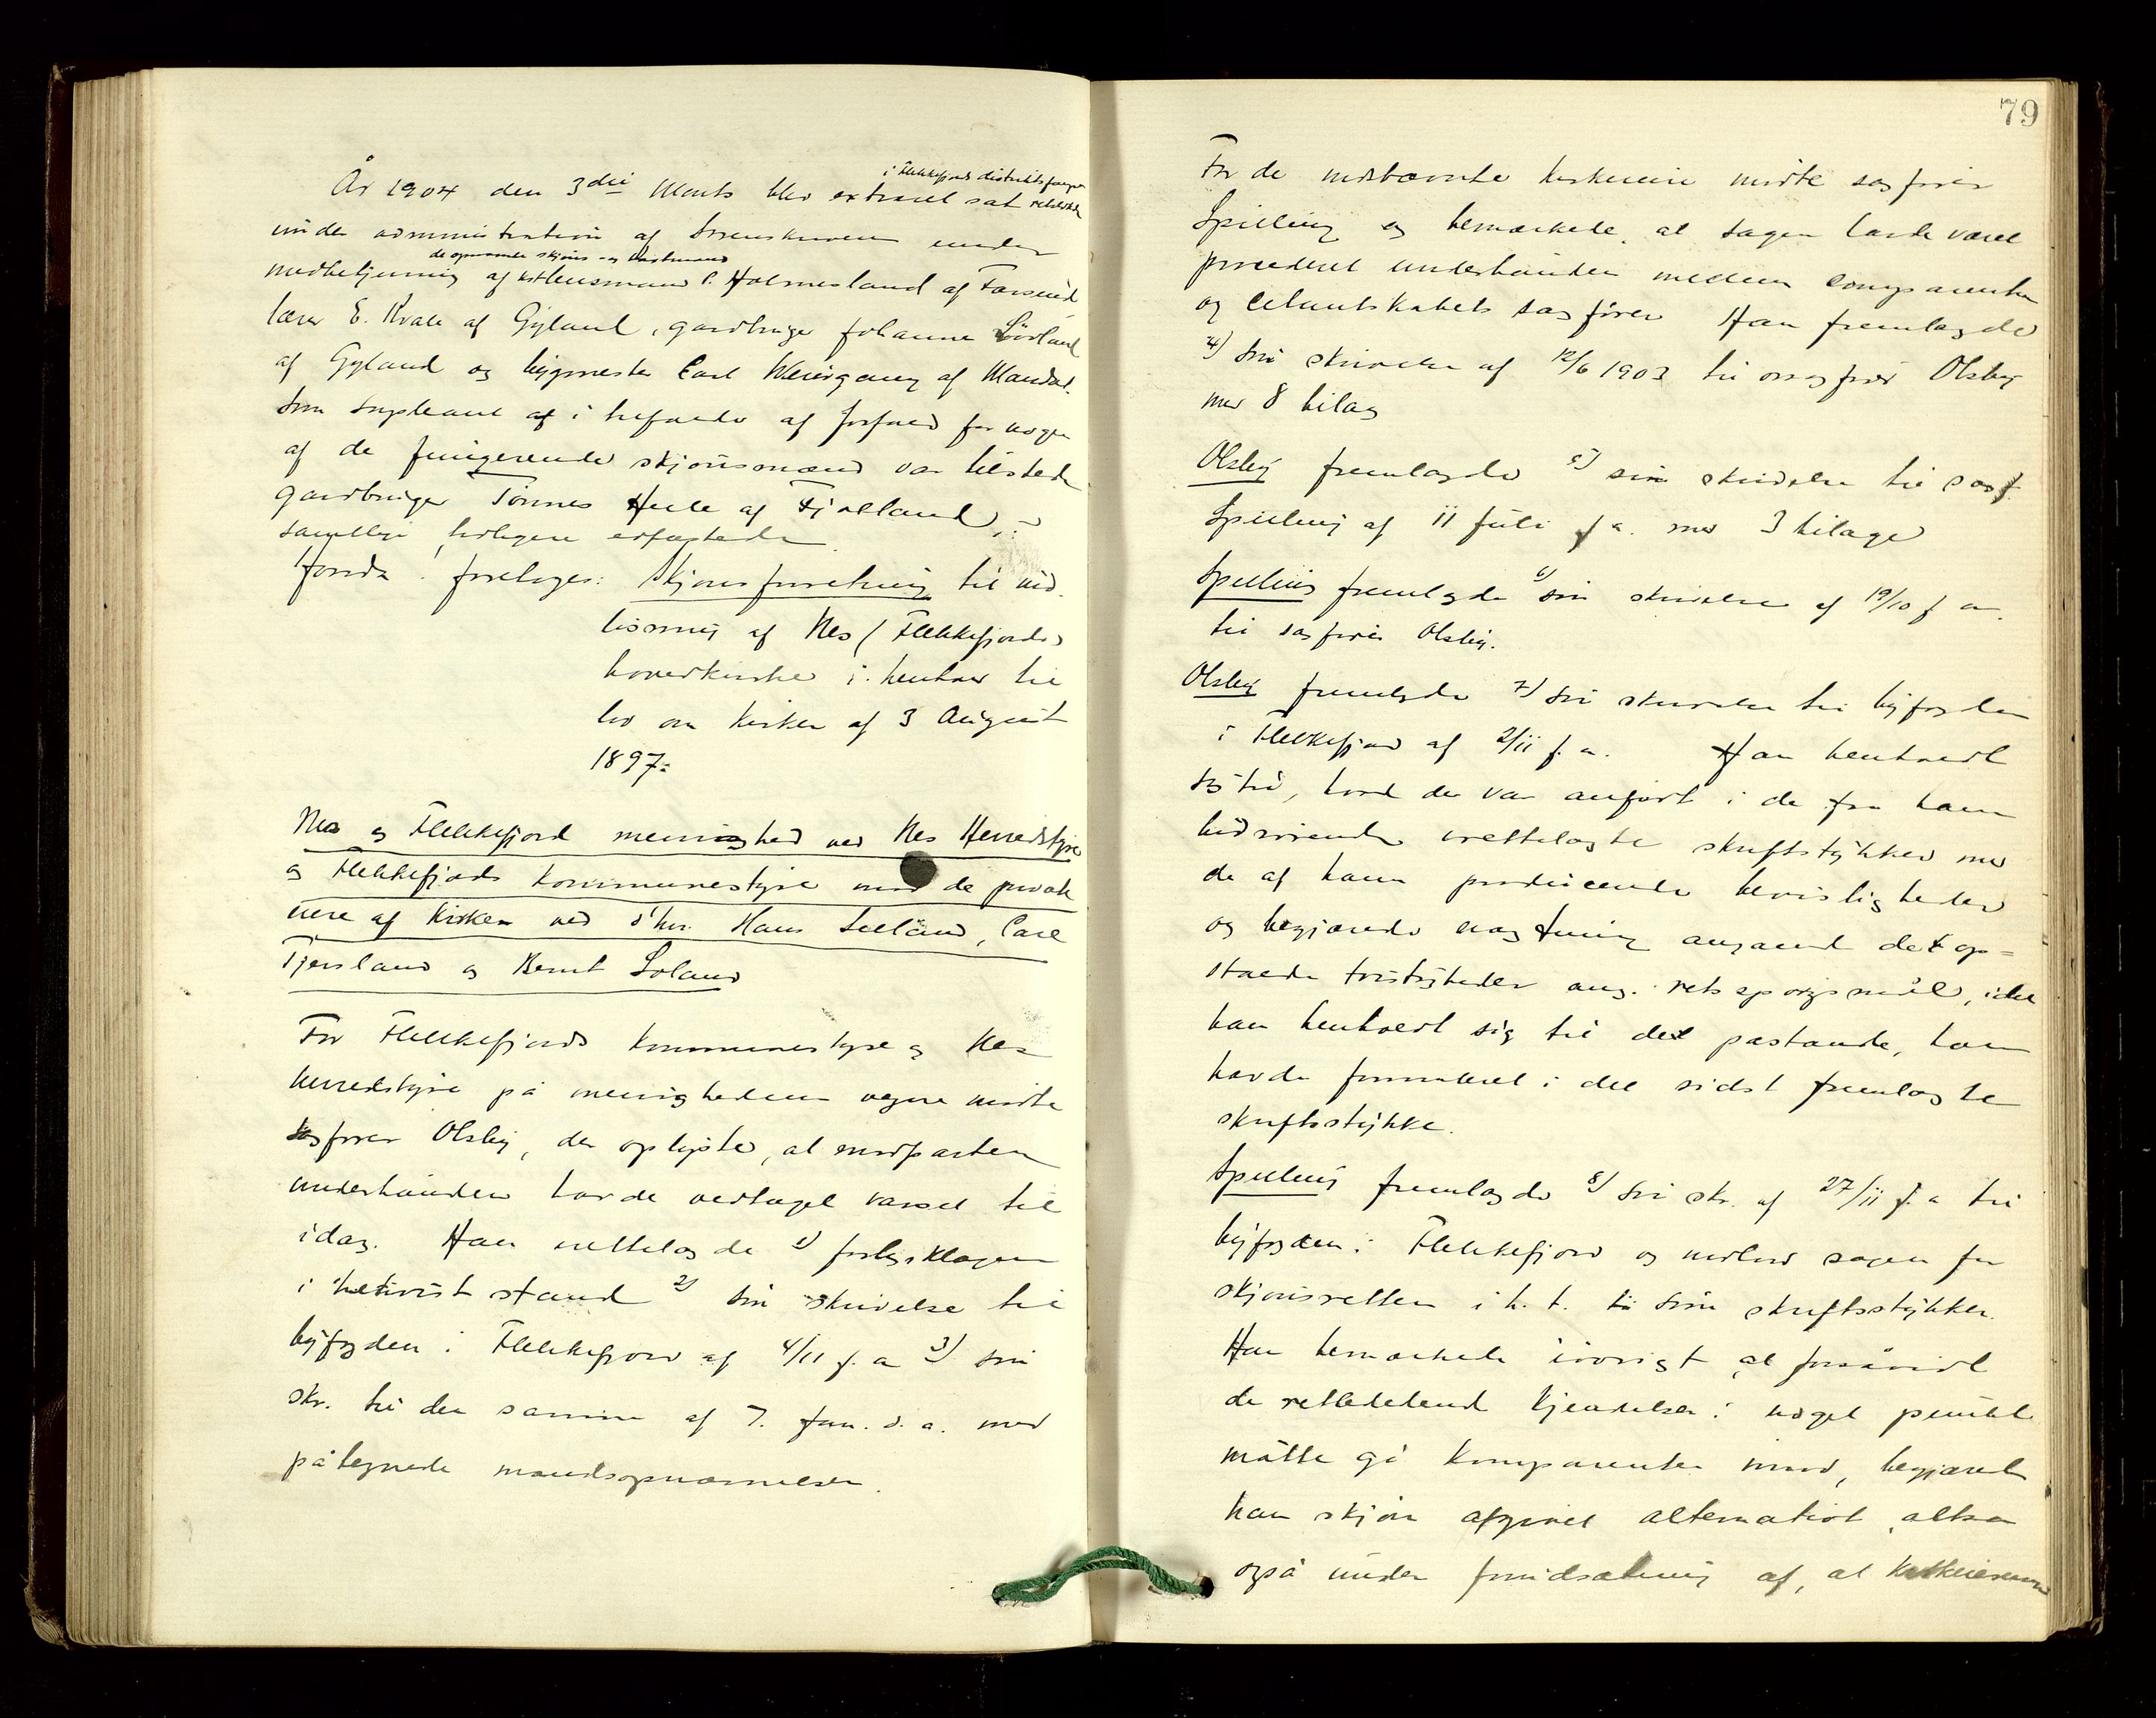 i Flekkefjords distriktsfængsel
År 1904 den 3die Marts blev extraret sat retsledede
under administration af Sorenskriveren under
de opnævnte skjøns- og
medbetjening af Lensmand C. Holmesland af Farsund
lærer E. Kvale af Gyland, gardbruger Johannes Lövland
af Gyland og bygmester Carl Weiergang af Mandal.
Som supleant i tilfælde af forfald for nogen
af de fungerende skjønsmænd var tilstede
gardbruger Tönnes Hele af Fjotland,
samtlige tidligere edfæstede
foretages: Skjønsforretning til ind
løsning af Nes (Flekkefjords)
hovedkirke i henhold til
lov om kirker af 3 August
1897:
Nes og Flekkefjord menighed ved Nes Herredstyre
og Flekkefjords kommunestyre mod de private
eiere af kirken ved d'hrr. Hans Seeland, Carl
Tjersland og Bernt Soland
For Flekkefjords kommunestyre og Nes
herredstyre på menighedens vegne mødte
sagfører Olsby, der oplyste, at modparten
underhånden havde vedtaget varsel til
idag. Han rettelagde 1) forligsklagen
i beskrevet stand 2) sin skrivelse til
byfogden i Flekkefjord af 4/11 f. a 3) sin
skr. til den samme af 7. Jan. d. a. med
påtegnede mandsopnævnelser.
79
For de indstævnte kirkeeiere mødte sagfører
Spilling og bemærkede, at sagen havde været
procederet underhånden mellem comparenten
og citantskabets sagfører Han fremlagde
4) sin skrivelse af 12/6 1903 til sagfører Olsby
med 8 bilag
Olsby fremlagde 5) sin skrivelse til sagf
Spilling af 11 Juli f a. med 3 bilage
Spilling fremlagde 6) sin skrivelse af 19/10 f a.
til sagfører Olsby.
Olsby fremlagde 7) sin skrivelse til byfogden
i Flekkefjord af 2/11 f. a. Han henholdt
sig til, hvad der var anført i de fra ham
hidrørende rettelagte skriftstykker med
de af ham producerede bevisligheder
og begjærede angaaend det op=
staaede tvistigheder ang. retsspørgsmål, idet
han henholdt sig til det pastande, han
havde formuleret i det sidst fremlagte
skriftsstykke.
Spilling fremlagde 8) sin skr. af 27/11 f. a til
byfogden i Flekkefjord og indlod sagen for
skjønsretten i h. t. til sine skriftsstykker.
Han bemærkede iøvrigt, at forsåvidt
de retledende kjendelser i noget punkt
måtte gå komparenten imod, begjærede
han skjøn afgivet alternativt, altsa
også under forudsætning af, at kirkeeierne